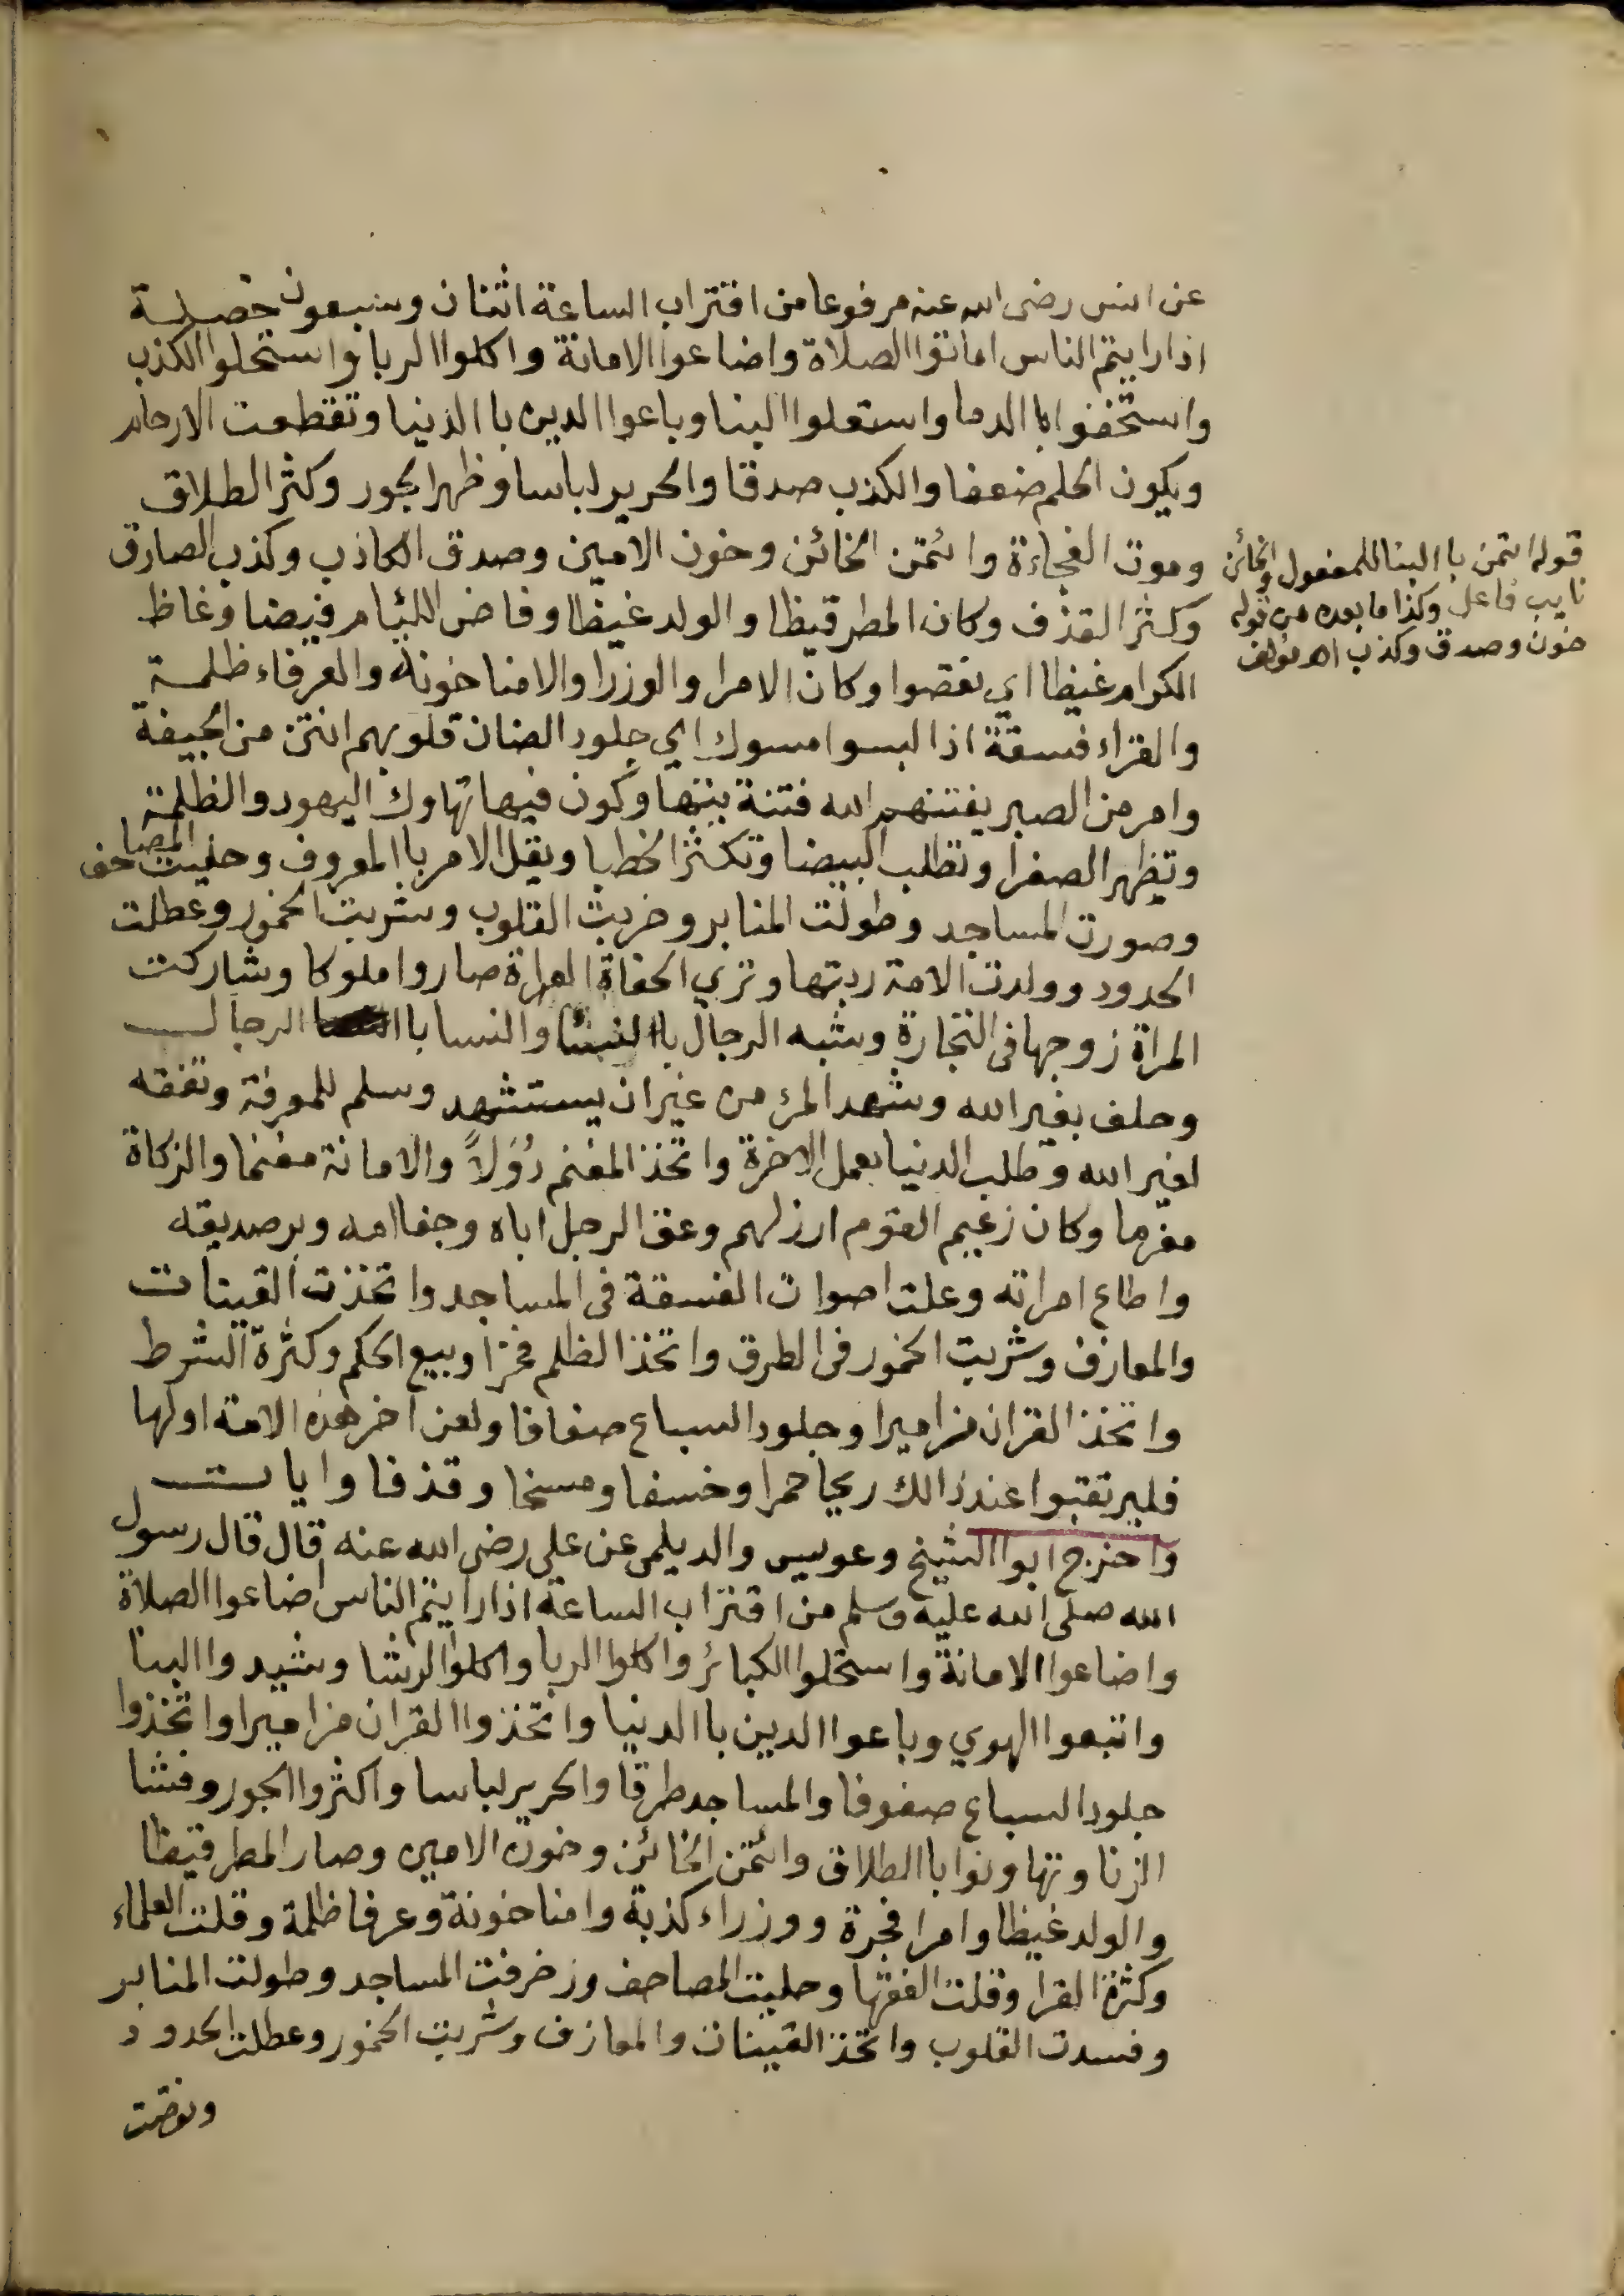 عن انس رضى الله عنه مرفوعا من اقتراب الساعة اثنان وسبعون خصلة
اذا رايتم الناس اماتوا الصلاة واضاعوا الامانة واكلوا الربا واستحلوا الكذب
واستخفوا باالدما واستعلوا البنا وباعوا الدين باالدنيا وتقطعت الارحام
ويكون الحلم ضعفا والكذب صدقا والحرير لباسا وظهر الجور وكثر الطلاق
وموت الفجاءة وائتمن الخائن وخون الامين وصدق الكاذب وكذب الصادق
وكثر القذف وكان المطر قيظا والولد غيظا وفاض اللئام فيضا وغاظ
الكرام غيظا اي نقصوا وكان الامرا والوزرا والامنا خونة والعرفاء ظلمة
والقراء فسقة اذا لبسوا مسوك اي جلود الضان قلوبهم انتن من الجيفة
وامر من الصبر يفتنهم الله فتنة يتهاوكون فيها تهاوك اليهود والظلمة
وتظهر الصفرا وتطلب البيضا وتكثر الخطبا ويقل الامر باالمعروف وحليت المصاحف
وصورت المساجد وطولت المنابر وخربت القلوب وشربت الخمور وعطلت
الحدود وولدت الامة ربتها وتري الحفاة العراة صاروا ملوكا وشاركت
المراة زوجها فى التجارة وتشبه الرجال باالنسا والنسا با الرجال
وحلف بغير الله وشهد المرء من غير ان يستشهد وسلم للمعرفة وتفقه
لغير الله وطلب الدنيا بعمل الاخرة واتخذ المغنم دُوَلاً والامانة مغنما والزكاة
مغرما وكان زعيم القوم ارذلهم وعق الرجل اباه وجفا امه وبر صديقه
واطاع امراته وعلت اصوات الفسقة فى المساجد واتخذت القينات
والمعازف وشربت الخمور فى الطرق واتخذ الظلم فخرا وبيع الحكم وكثرة الشرط
واتخذ القران مزاميرا وجلود السباع صفافا ولعن اخر هذه الامة اولها
فليرتقبوا عند ذالك ريحا حمرا وخسفا ومسخا وقذفا وايات
واخرج ابوا الشيخ وعويس والديلمى عن علي رضى الله عنه قال قال رسول
الله صلى الله عليه وسلم من اقتراب الساعة اذا رايتم الناس اضاعوا الصلاة
واضاعوا الامانة واستحلوا الكبائر واكلوا الربا واكلوا الرشا وشيدوا البنا
واتبعوا الهوي وباعوا الدين باالدنيا واتخذوا القران مزاميرا واتخذوا
جلود السباع صفوفا والمساجد طرقا والحرير لباسا واكثروا الجور وفشا
الزنا وتهاونوا باالطلاق وائتمن الخائن وخون الامين وصار المطر قيظا
والولد غيظا وامرا فجرة ووزراء كذبة وامنا خونة وعرفا ظلمة وقلت العلماء
وكثرة القرا وقلت الفقها وحليت المصاحف وزخرفت المساجد وطولت المنابر
وفسدت القلوب واتخذ القينات والمعازف وشربت الخمور وعطلت الحدود
ونقصت
قوله ائتمن باالبنا للمفعول والخائن
نايب فاعل وكذا ما بعده من قوله
خون وصدق وكذب اهـ مؤلف